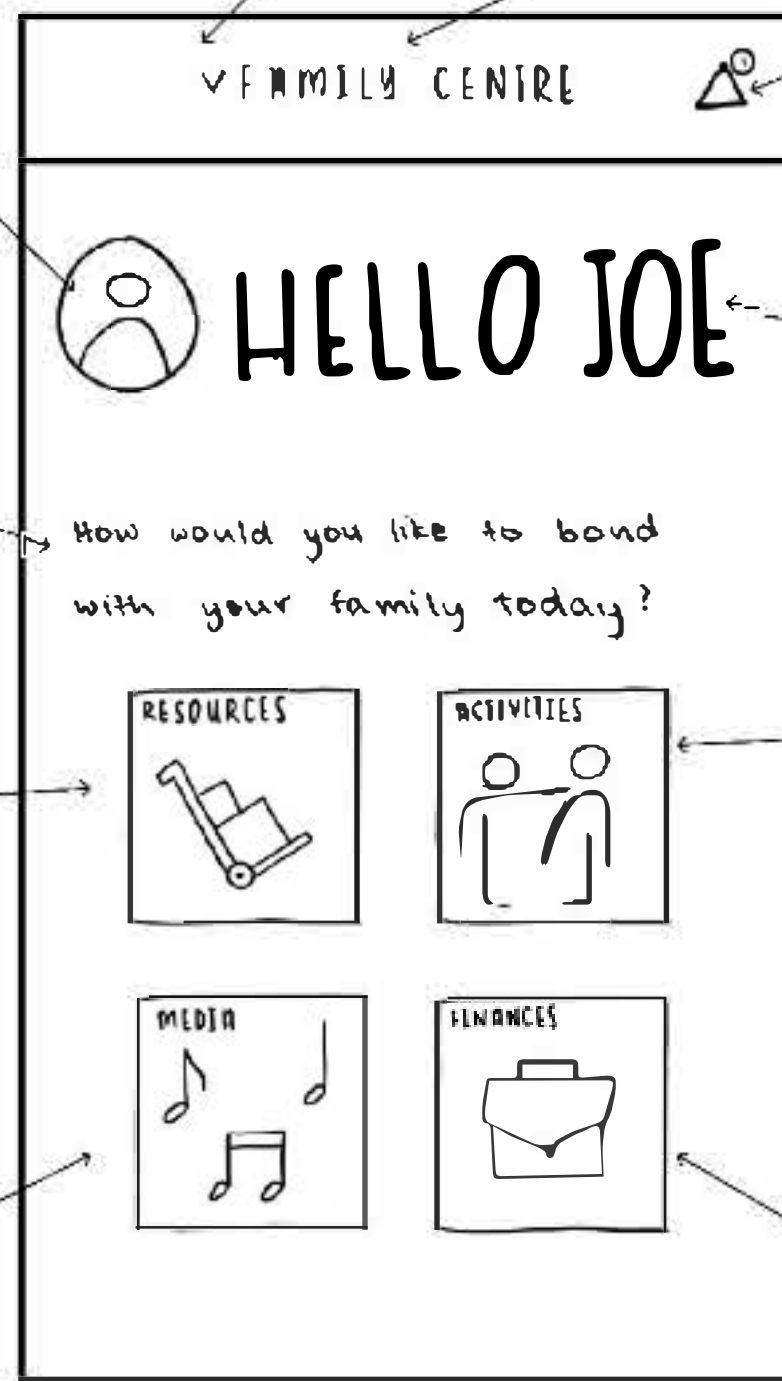 FAMILY CENTRE
HELLO JOE
How would you like to bond
with your family today?
RESOURCES
ACTIVITIES
MEDIA
FINANCES